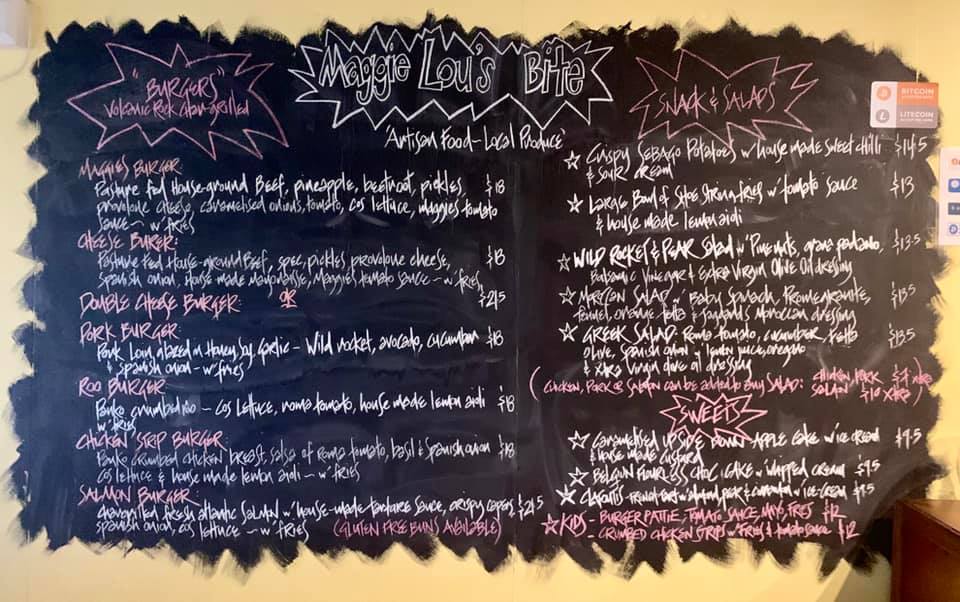 Maggie Lou's Bite
'Artisan Food - Local Produce'
"BURGERS"
Volcanic Rock Char-Grilled
MAGGIES BURGER
Pasture fed House-ground Beef, pineapple, beetroot, pickles, $18
provolone cheese, caramelised onions, tomato, cos lettuce, maggies tomato
sauce ~ w' fries
CHEESE BURGER:
Pasture Fed House-ground Beef, spec, pickles, provolone cheese, $18
Spanish onion, House made mayonnaise, Maggies tomato sauce ~ w' fries
DOUBLE CHEESE BURGER: OR
PORK BURGER:
Pork Loin, glazed in Honey, Soy, Garlic ~ Wild rocket, avocado, cucumber $18
& Spanish onion ~ w' fries
ROO BURGER
Panko crumbed roo ~ Cos lettuce, roma tomato, house made lemon aioli $18
w' fries
CHICKEN STRIP BURGER:
Panko crumbed chicken breast, salsa of Roma tomato, basil & Spanish onion $18
Cos lettuce & house made lemon aioli ~ w' fries
SALMON BURGER:
Chargrilled fresh atlantic salmon w' house-made tartare sauce, crispy capers,
Spanish onion, cos lettuce ~ w' fries (GLUTEN FREE BUNS AVAILABLE)
SNACK & SALADS
☆ Crispy SEBAGO Potatoes w' house made sweet chilli $14.5
& sour cream
☆ Large Bowl of Shoestring fries w' tomato sauce $13
& house made lemon aioli
☆ WILD ROCKET & PEAR Salad w' Pinenuts, grana padano, $13.5
Balsamic Vinegar & Extra Virgin Olive Oil dressing
☆ Moroccan SALAD Baby Spinach, Pomegranate,
Fennel, orange, fetta & Moroccan dressing
☆ GREEK SALAD: Roma tomato, cucumber, Fetta
olive, Spanish onion w' lemon juice, oregano
& Xtra Virgin olive oil dressing
(CHICKEN, PORK OR SALMON CAN BE ADDED TO ANY SALAD: CHICKEN, PORK
SALMON $10
SWEETS
☆ Caramelised UPSIDE DOWN APPLE CAKE w' ice cream $9.5
& House made custard
☆ BELGIUM FLOURLESS CHOC. CAKE w' whipped cream $9.5
☆ w' almond, pear & w' ice-cream $9.5
☆ KIDS - BURGER PATTIE, TOMATO SAUCE, MAYO, FRIES $12
- CRUMBED CHICKEN STRIPS w' FRIES & tomato sauce $12
BITCOIN
ACCEPTED HERE
LITECOIN
ACCEPTED HERE